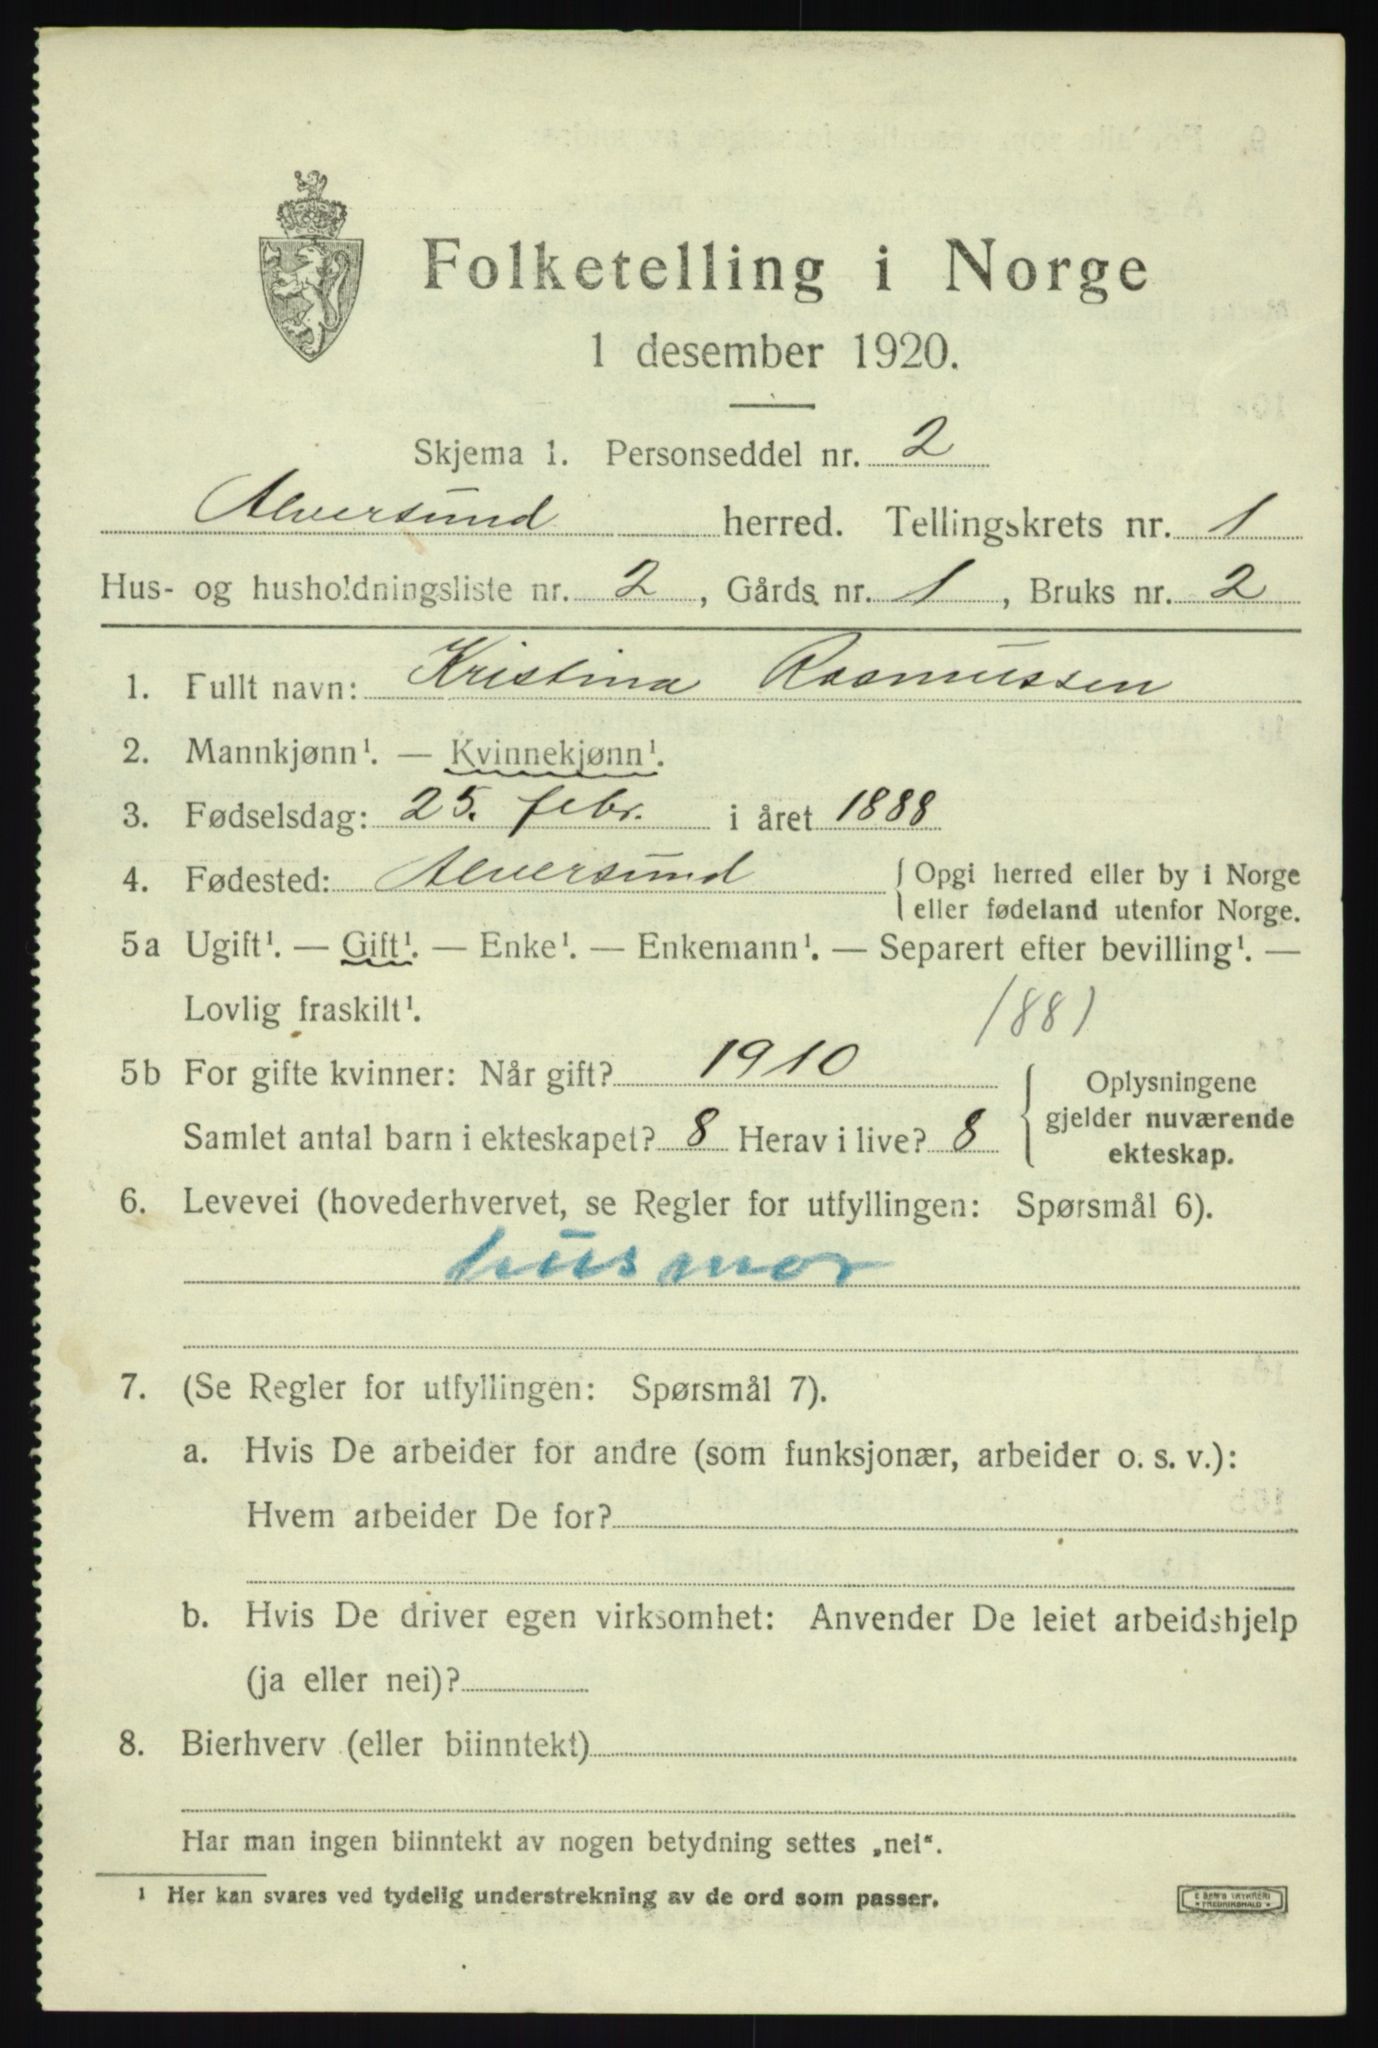 Folketelling i Norge
1 desember 1920.
Skjema 1. Personseddel nr. 2
Alversund herred. Tellingskrets nr. 1
Hus- og husholdningsliste nr. 2, Gårds nr. 1, Bruks nr. 2
1. Fullt navn: Kristina Rasmussen
2. Mannkjønn¹. — Kvinnekjønn¹.
3. Fødselsdag: 25. febr. i året 1888
4. Fødested: Alversund { Opgi herred eller by i Norge
eller fødeland utenfor Norge.
5a Ugift¹. — Gift¹. — Enke¹. — Enkemann¹. — Separert efter bevilling¹. —
Lovlig fraskilt¹.
(88)
5b For gifte kvinner: Når gift? 1910
Samlet antal barn i ekteskapet? 8 Herav i live? 8
{ Oplysningene
gjelder nuværende
ekteskap.
6. Levevei (hovederhvervet, se Regler for utfyllingen: Spørsmål 6).
husmor
7. (Se Regler for utfyllingen: Spørsmål 7).
a. Hvis De arbeider for andre (som funksjonær, arbeider o. s. v.):
Hvem arbeider De for?
b. Hvis De driver egen virksomhet: Anvender De leiet arbeidshjelp
(ja eller nei)?
8. Bierhverv (eller biinntekt)
Har man ingen biinntekt av nogen betydning settes „nei“.
¹ Her kan svares ved tydelig understrekning av de ord som passer.
FREDRIKSHALD